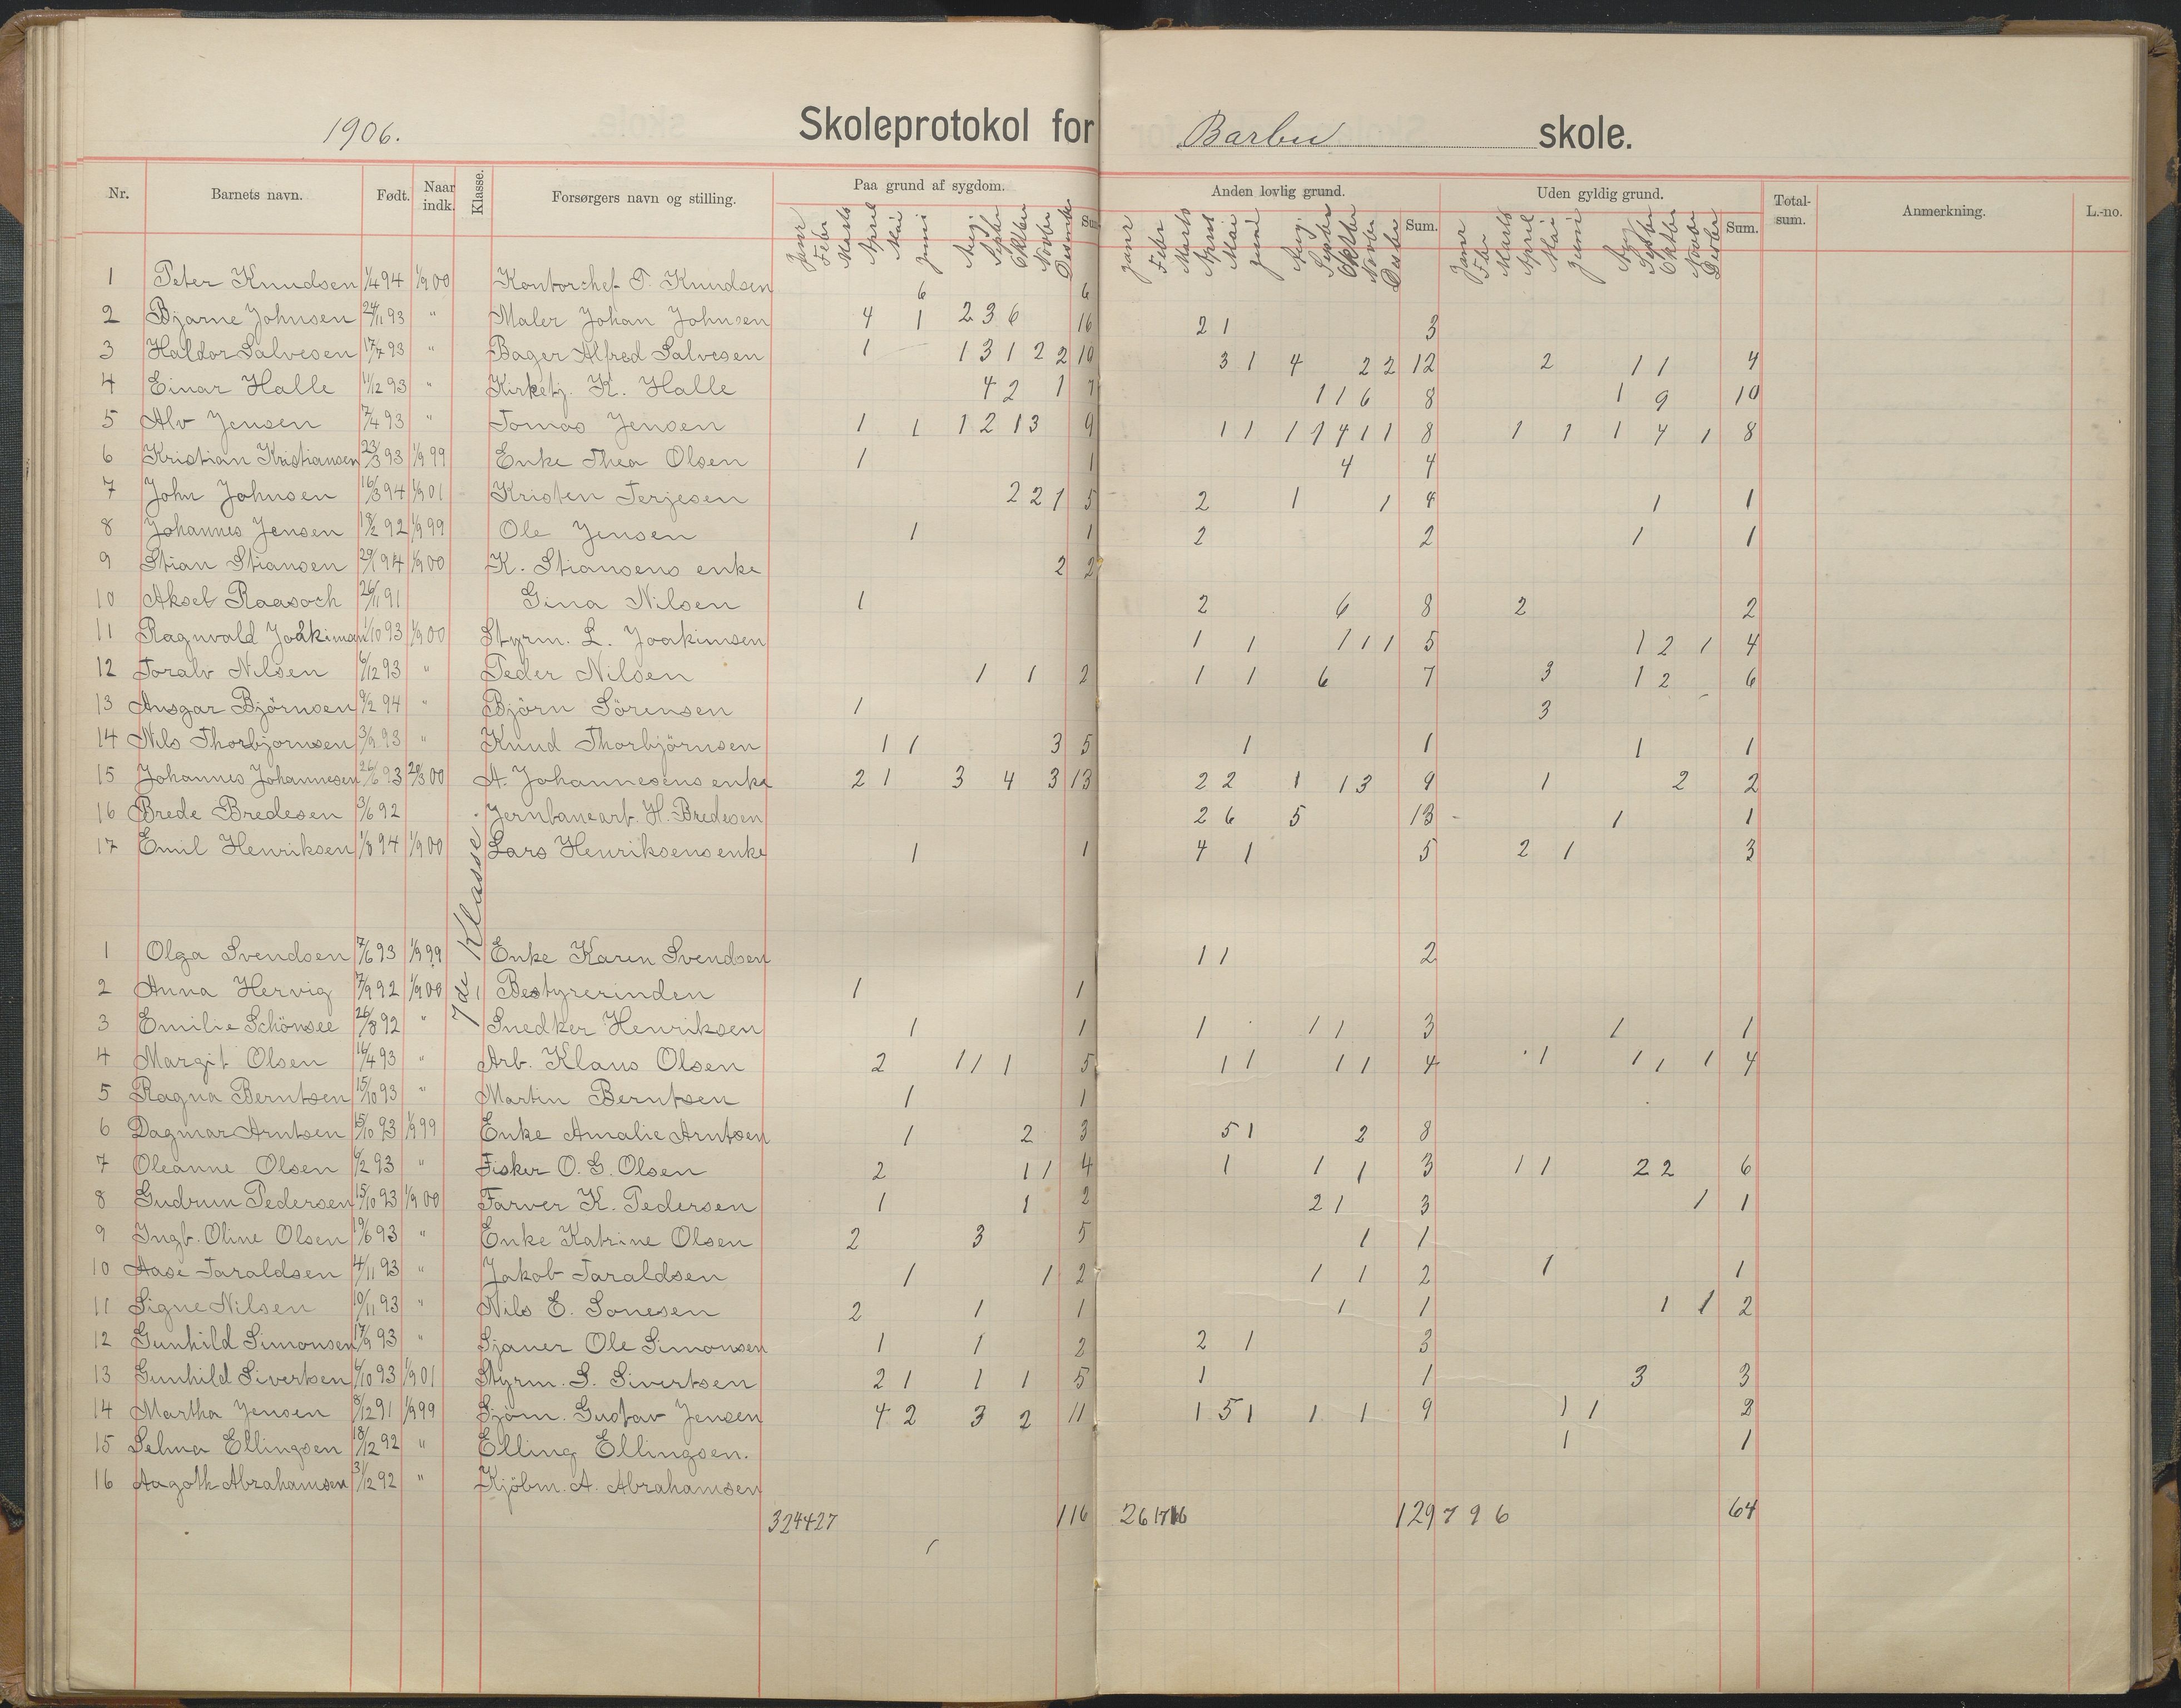 1906. Skoleprotokol for Barbu skole.
Nr. Barnets navn. Født. Naar indk. Klasse. Forsørgers navn og stilling. Paa grund af sygdom. Anden lovlig grund. Uden gyldig grund. Total-sum. Anmerkning. L.-no.
Janr Febr Marts April Mai Juni Aug. Septbr Oktbr Novbr Sum. Janr Febr Marts April Mai Juni Aug. Septbr Oktbr Novbr Desbr Sum. Janr Febr Marts April Mai Juni Aug Septbr Oktbr Novbr Desbr Sum.
1 Peter Knudsen 1/4 94 1/9 00 Kontorchef T. Knudsen 6 6
2 Bjarne Johnsen 24/11 93 " Maler Johan Johnsen 4 1 2 3 6 16 2 1 3
3 Haldor Salvesen 17/7 93 " Bager Alfred Salvesen 1 1 3 1 2 2 10 3 1 4 2 2 12 2 1 1 4
4 Einar Halle 11/12 93 " Kirketj. K. Halle 4 2 1 7 1 1 6 8 1 9 10
5 Alv Jensen 7/4 93 " Tomas Jensen 1 1 1 2 1 3 9 1 1 1 1 4 1 1 8 1 1 1 4 1 8
6 Kristian Kristiansen 23/3 93 1/9 99 Enke Thea Olsen 1 1 4 4
7 John Johnsen 16/3 94 1/9 01 Kristen Terjesen 2 2 1 5 2 1 1 4 1 1
8 Johannes Jensen 1/9 99 Ole Jensen 1 1 2 2 1 1
9 Stian Stiansen 29/1 94 1/9 00 K. Stiansens enke 2 2
10 Aksel Raasoch 26/11 91 Gina Nilsen 1 2 6 8 2 2
11 Ragnvald Joakimsen 1/10 93 1/9 00 Styrm. L. Joakimsen 1 1 1 1 1 5 1 2 1 4
12 Toralv Nilsen 6/12 93 " Peder Nilsen 1 1 2 1 1 6 7 3 1 2 6
13 Ansgar Björnsen 9/2 94 " Björn Sörensen 1 3
14 Nils Thorbjornsen 3/9 93 " Knud Thorbjörnsen 1 1 3 5 1 1 1 1
15 Johannes Johannesen 26/6 93 A. Johannesens enke 2 1 3 4 3 13 2 2 1 1 3 9 1 2 2
16 Brede Bredesen 3/6 92 Jernbanearb. H. Bredesen 2 6 5 13 1 1
17 Emil Henriksen 1/3 94 1/9 00 Lars Henriksens enke 1 1 4 1 5 2 1 3
7de Klasse.
1 Olga Svendsen 7/6 93 1/9 99 Enke Karen Svendsen 1 1 2
2 Anna Hervig 7/9 92 1/9 00 Bestyrerinden 1 1
3 Emilie Schönsee 26/8 92 " Snedker Henriksen 1 1 1 1 1 3 1 1
4 Margit Olsen 16/4 93 " Arb. Klaus Olsen 2 1 1 1 5 1 1 1 1 4 1 1 1 1 4
5 Ragna Berntsen 15/10 93 " Martin Berntsen 1 1
6 Dagmar Arntsen 15/10 93 1/9 99 Enke Amalie Arntsen 1 2 3 5 1 2 8
7 Oleanne Olsen 6/2 93 " Fisker O. G. Olsen 2 1 1 4 1 1 1 3 1 1 2 2 6
8 Gudrun Pedersen 15/10 93 1/9 00 Farver K. Pedersen 1 1 2 2 1 3 1 1
9 Ingb. Oline Olsen 19/6 93 " Enke Katrine Olsen 2 3 5 1 1
10 Aase Taraldsen 4/11 93 " Jakob Taraldsen 1 1 2 1 1 2 1 1
11 Signe Nilsen 10/11 93 " Nils E. Sonesen 2 1 1 1 1 1 1 2
12 Gunhild Simonsen 17/9 93 " Sjauer Ole Simonsen 1 1 2 2 1 3
13 Gunhild Sivertsen 6/10 93 1/9 01 Styrm. S. Sivertsen 2 1 1 1 5 1 1 3 3
14 Martha Jensen 8/12 91 1/9 99 Sjöm. Gustav Jensen 4 2 3 2 11 1 5 1 1 1 9 1 1 2
15 Selma Ellingsen 18/12 92 " Elling Ellingsen. 1 1
16 Aagoth Abrahamsen 31/12 92 " Kjöbm. A. Abrahamsen
32 44 27 116 26 17 16 129 7 9 6 64